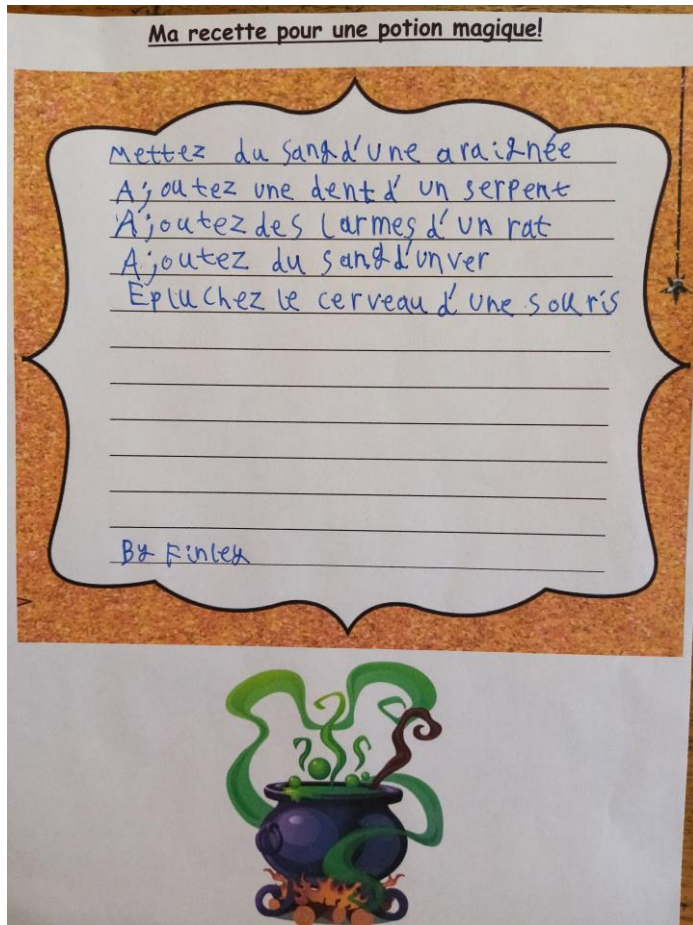 Ma recette pour une potion magique!
Mettez du sang d'une araignée
Ajoutez une dent d'un serpent
Ajoutez des larmes d'un rat
Ajoutez du sang d'un ver
Épluchez le cerveau d'une souris
By Finley